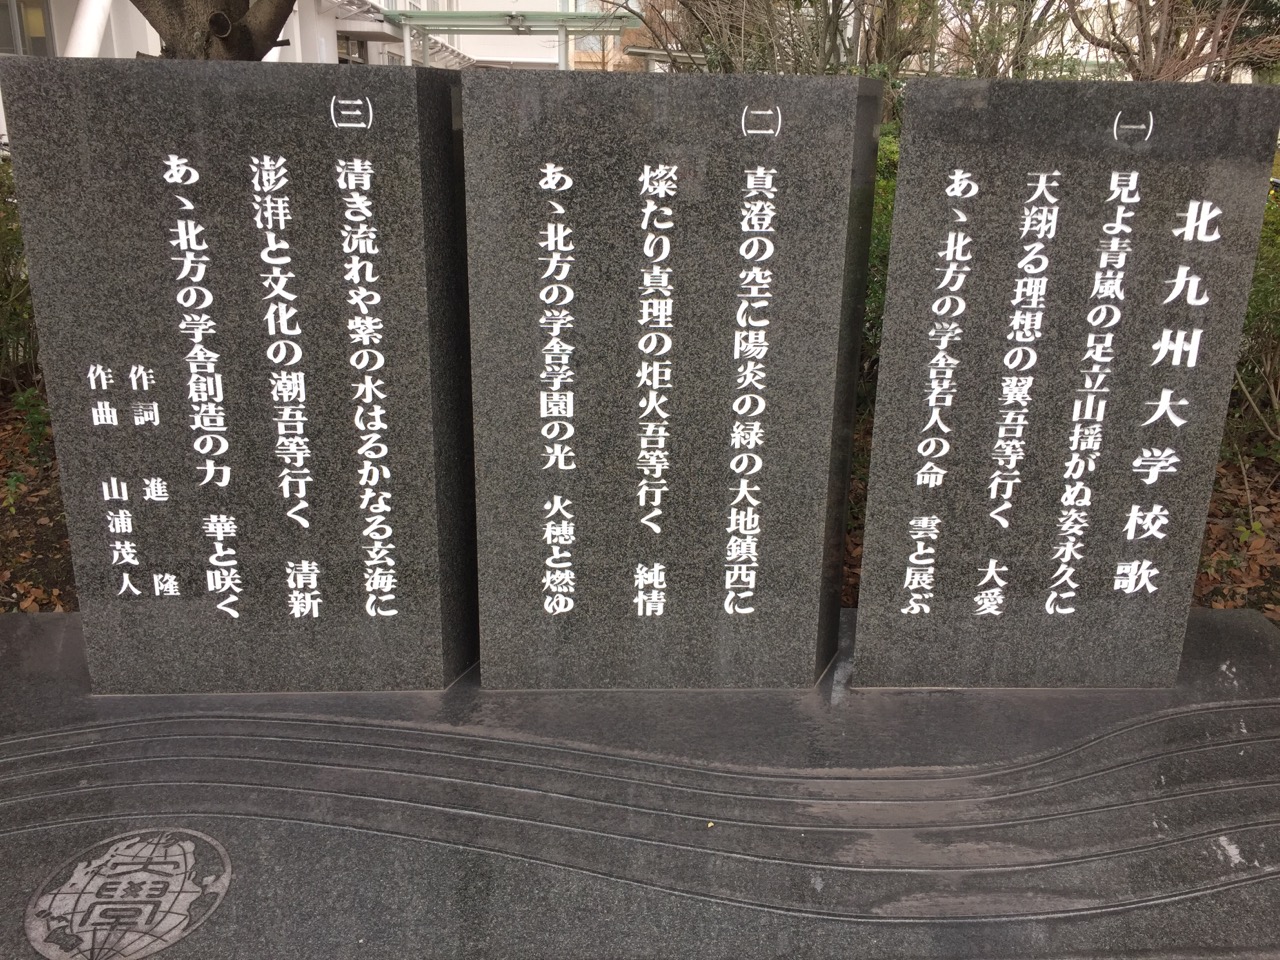 北九州大学校歌
㈠
見よ青嵐の足立山揺がぬ姿永久に
天翔る理想の翼吾等行く　大愛
あゝ北方の学舎若人の命　雲と展ぶ
㈡
真澄の空に陽炎の緑の大地鎮西に
燦たり真理の炬火吾等行く　純情
あゝ北方の学舎学園の光　火穂と燃ゆ
㈢
清き流れや紫の水はるかなる玄海に
澎湃と文化の潮吾等行く　清新
あゝ北方の学舎創造の力　華と咲く
作詞　進　隆
作曲　山浦茂人
大學